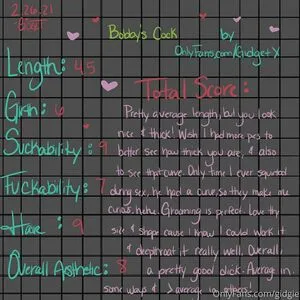 2.26.21
Bobby's Cock
by
OnlyFans.com/GidgetX
Length: 4.5
Girth: 6
Suckability: 9
Fuckability: 7
Hair: 9
Overall Aesthetic: 8
Total Score:
Pretty average length, but you look
nice & thick! Wish I had more pics to
better see how thick you are, & also
to see that curve. Only time I ever squirted
during sex, he had a curve, so they make me
curious, hehe. Grooming is perfect. Love the
size & shape cause I know I could work it
& deepthroat it really well. Overall,
a pretty good dick. Average in
some ways & > average in others!
Onlyfans.com/gidgie